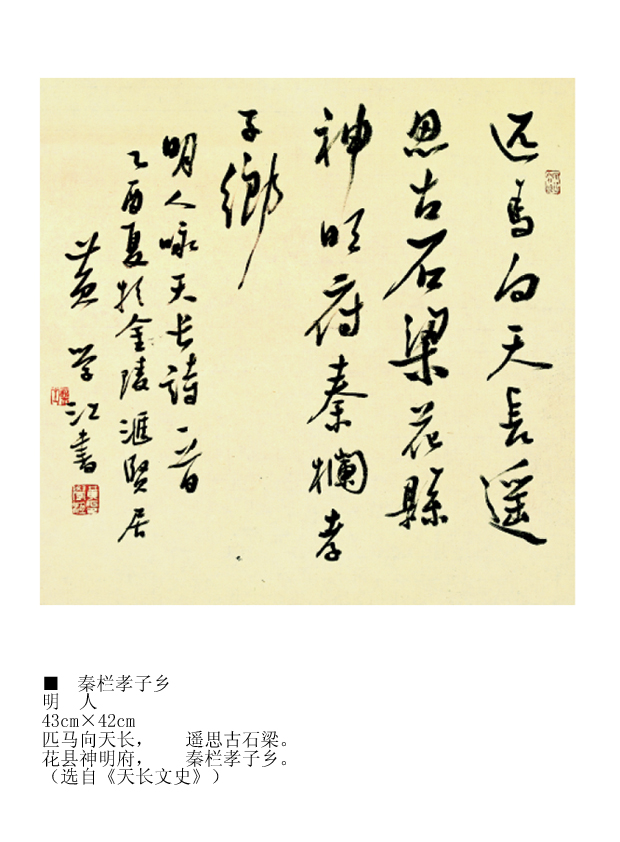 匹馬向天長遥
思古石梁花縣
神明府秦欄孝
子鄉
明人咏天长詩一首
乙酉夏於金陵滙賢居
黄学江書
■ 秦栏孝子乡
明 人
43cm×42cm
匹马向天长， 遥思古石梁。
花县神明府， 秦栏孝子乡。
（选自《天长文史》）